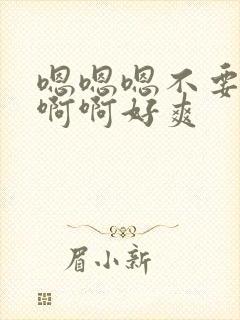 嗯嗯嗯不要
啊啊好爽
眉小新